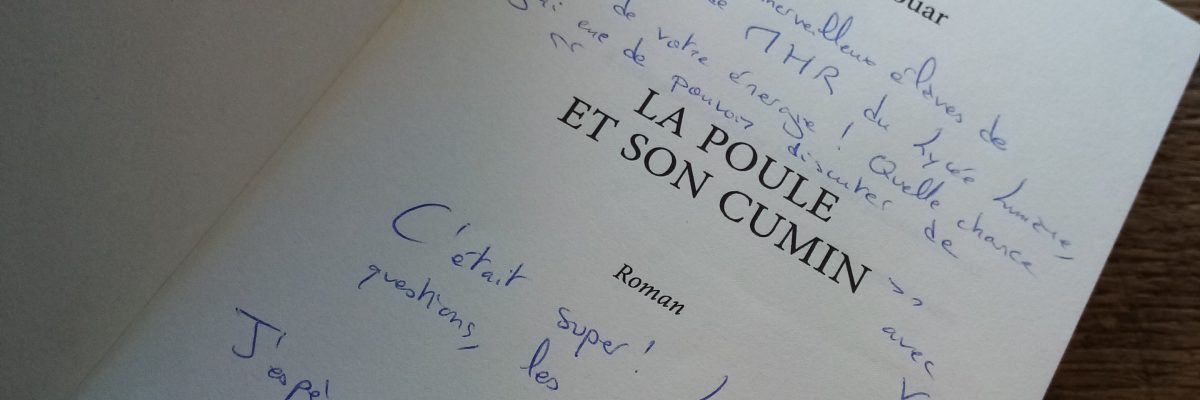 ouar
merveilleux élèves de
MHR du Lycée Lumière,
de votre énergie ! Quelle chance
que de pouvoir discuter de
«
LA POULE
ET SON CUMIN
» avec
Roman
C'était super !
questions, les
J'espè